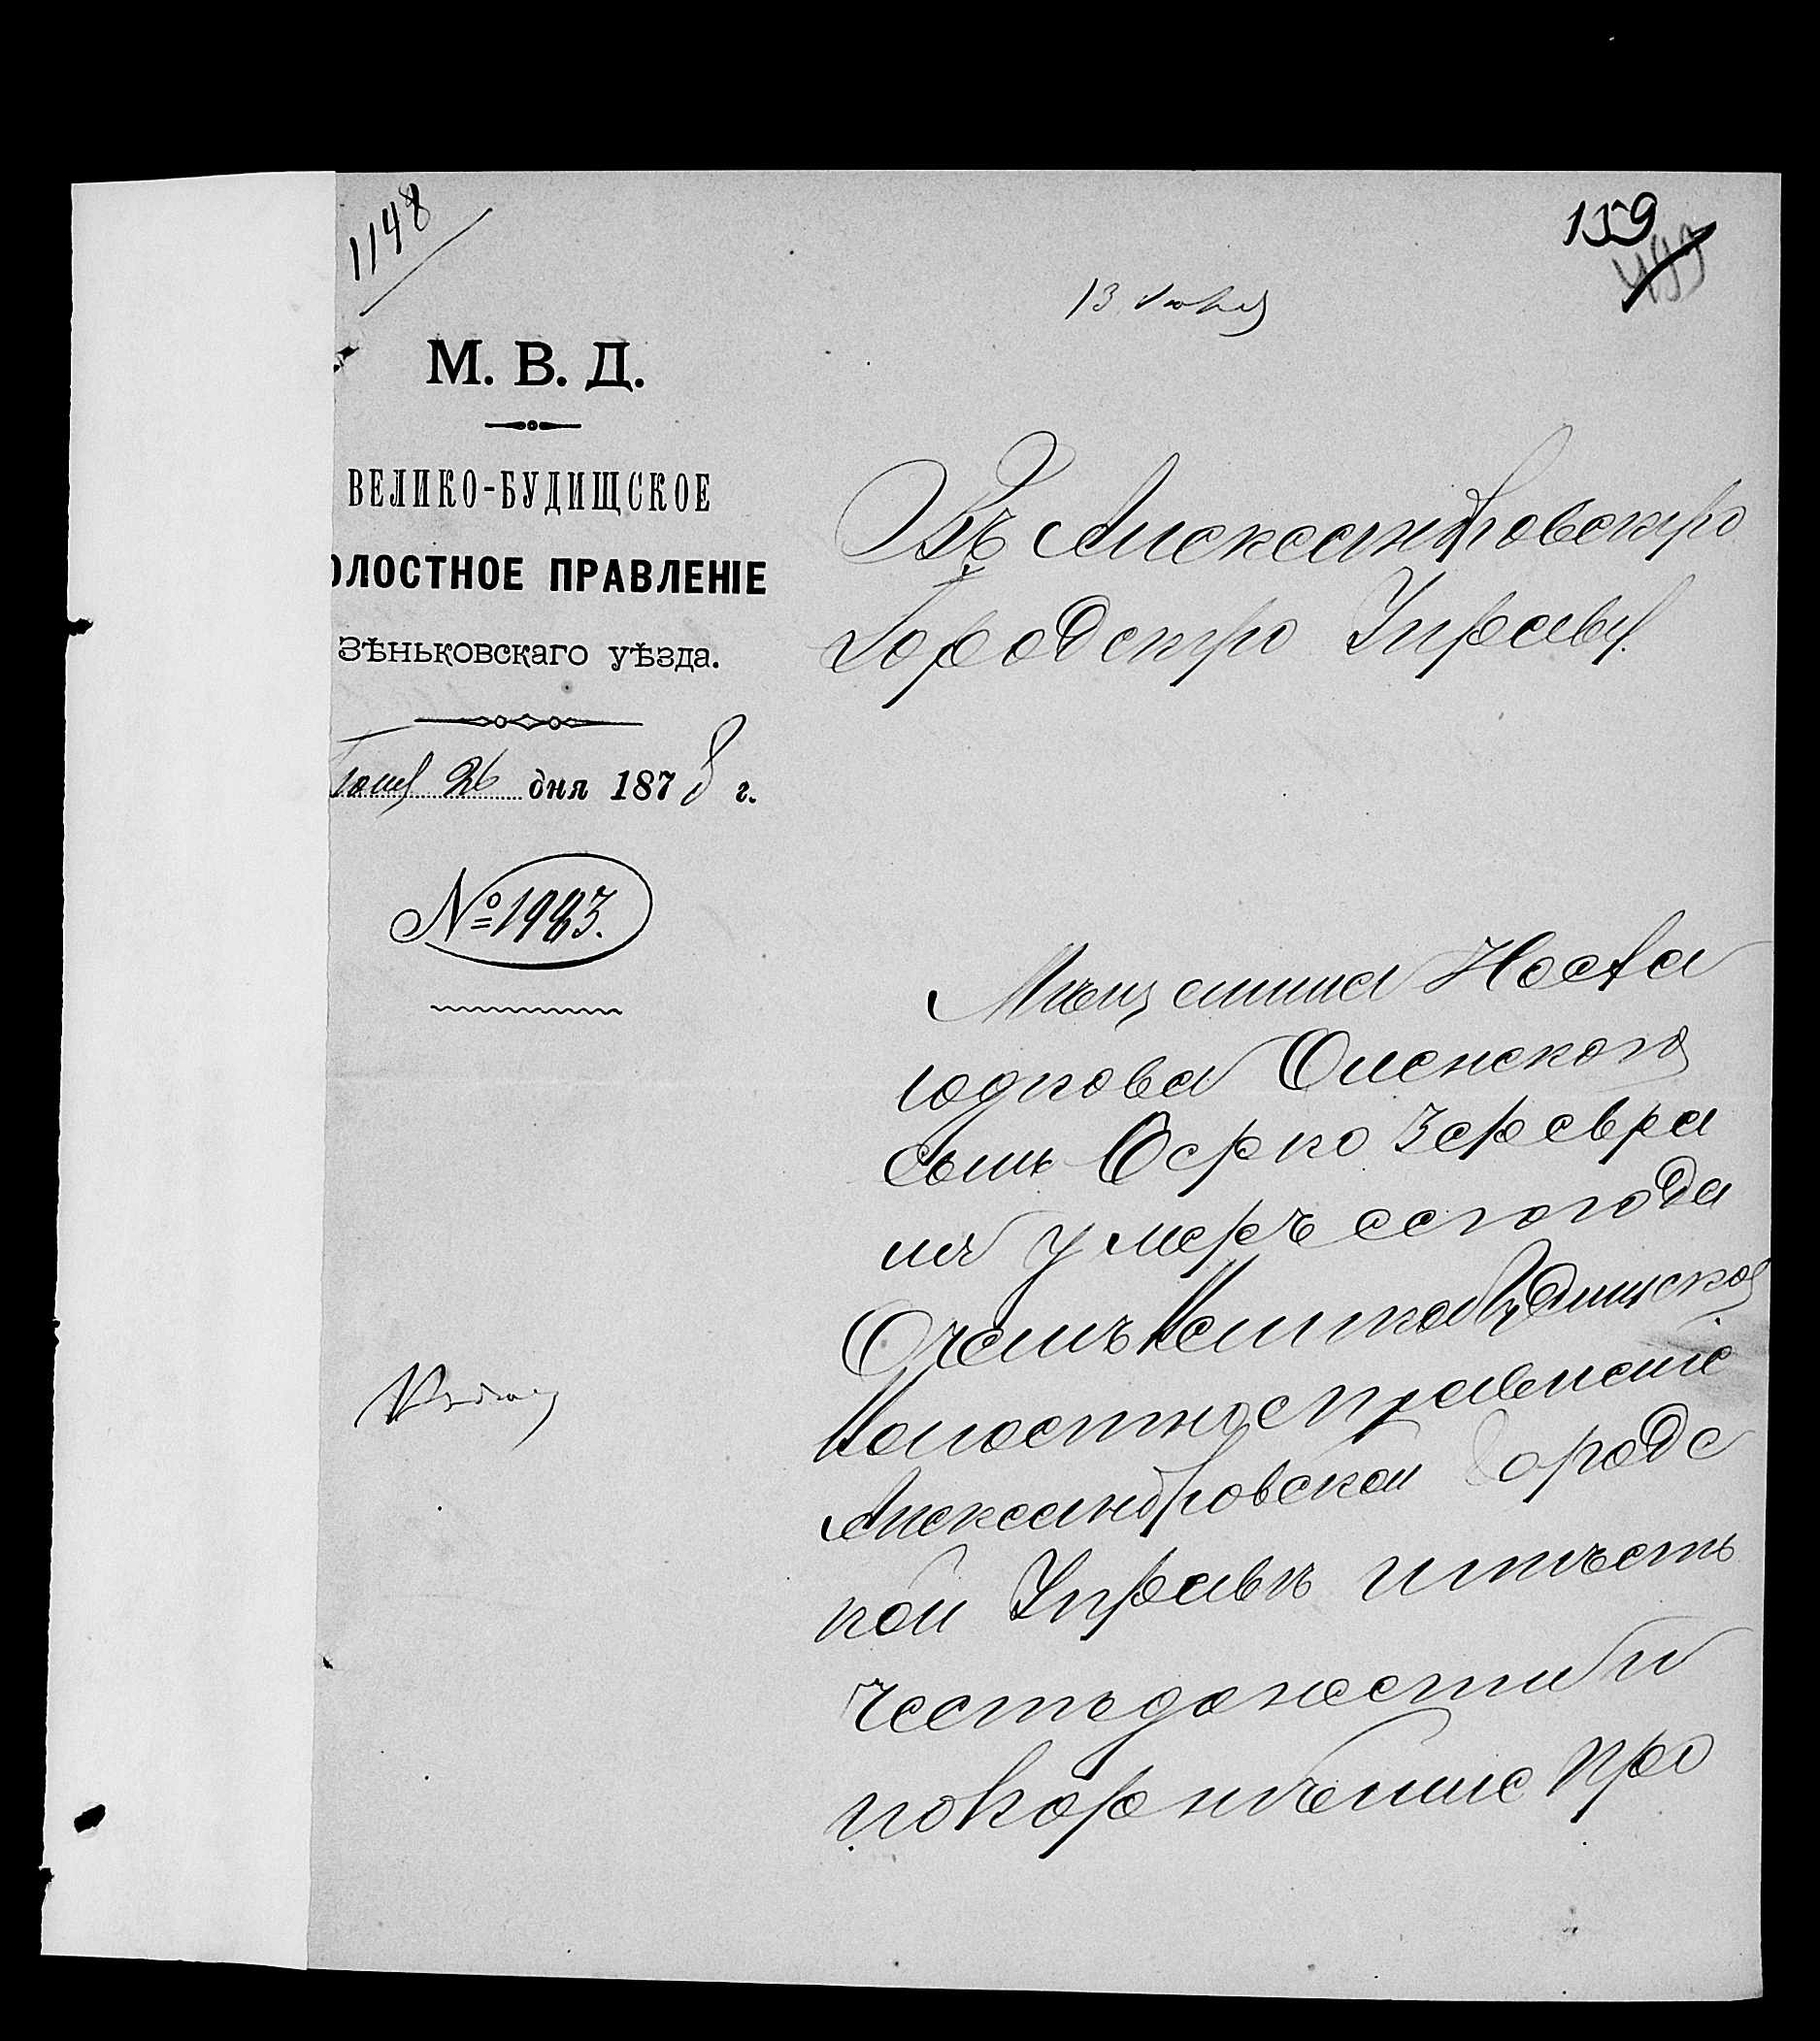 1148
159
13 Июля
М. В. Д.
ВЕЛИКО-БУДИЩСКОЕ
ОЛОСТНОЕ ПРАВЛЕНІЕ
Зѣньковскаго уѣзда.
Іюня 26 дня 1878 г.
№ 1983.
Въ Александровскую
Городскую Управу
Мѣщанина
Оленского
сынъ умеръ сего года
О чемъ Велико Будищское
Волостное правленіе
Александровской Городс
кой Управѣ имѣетъ
честь донести и
покорнѣйше про